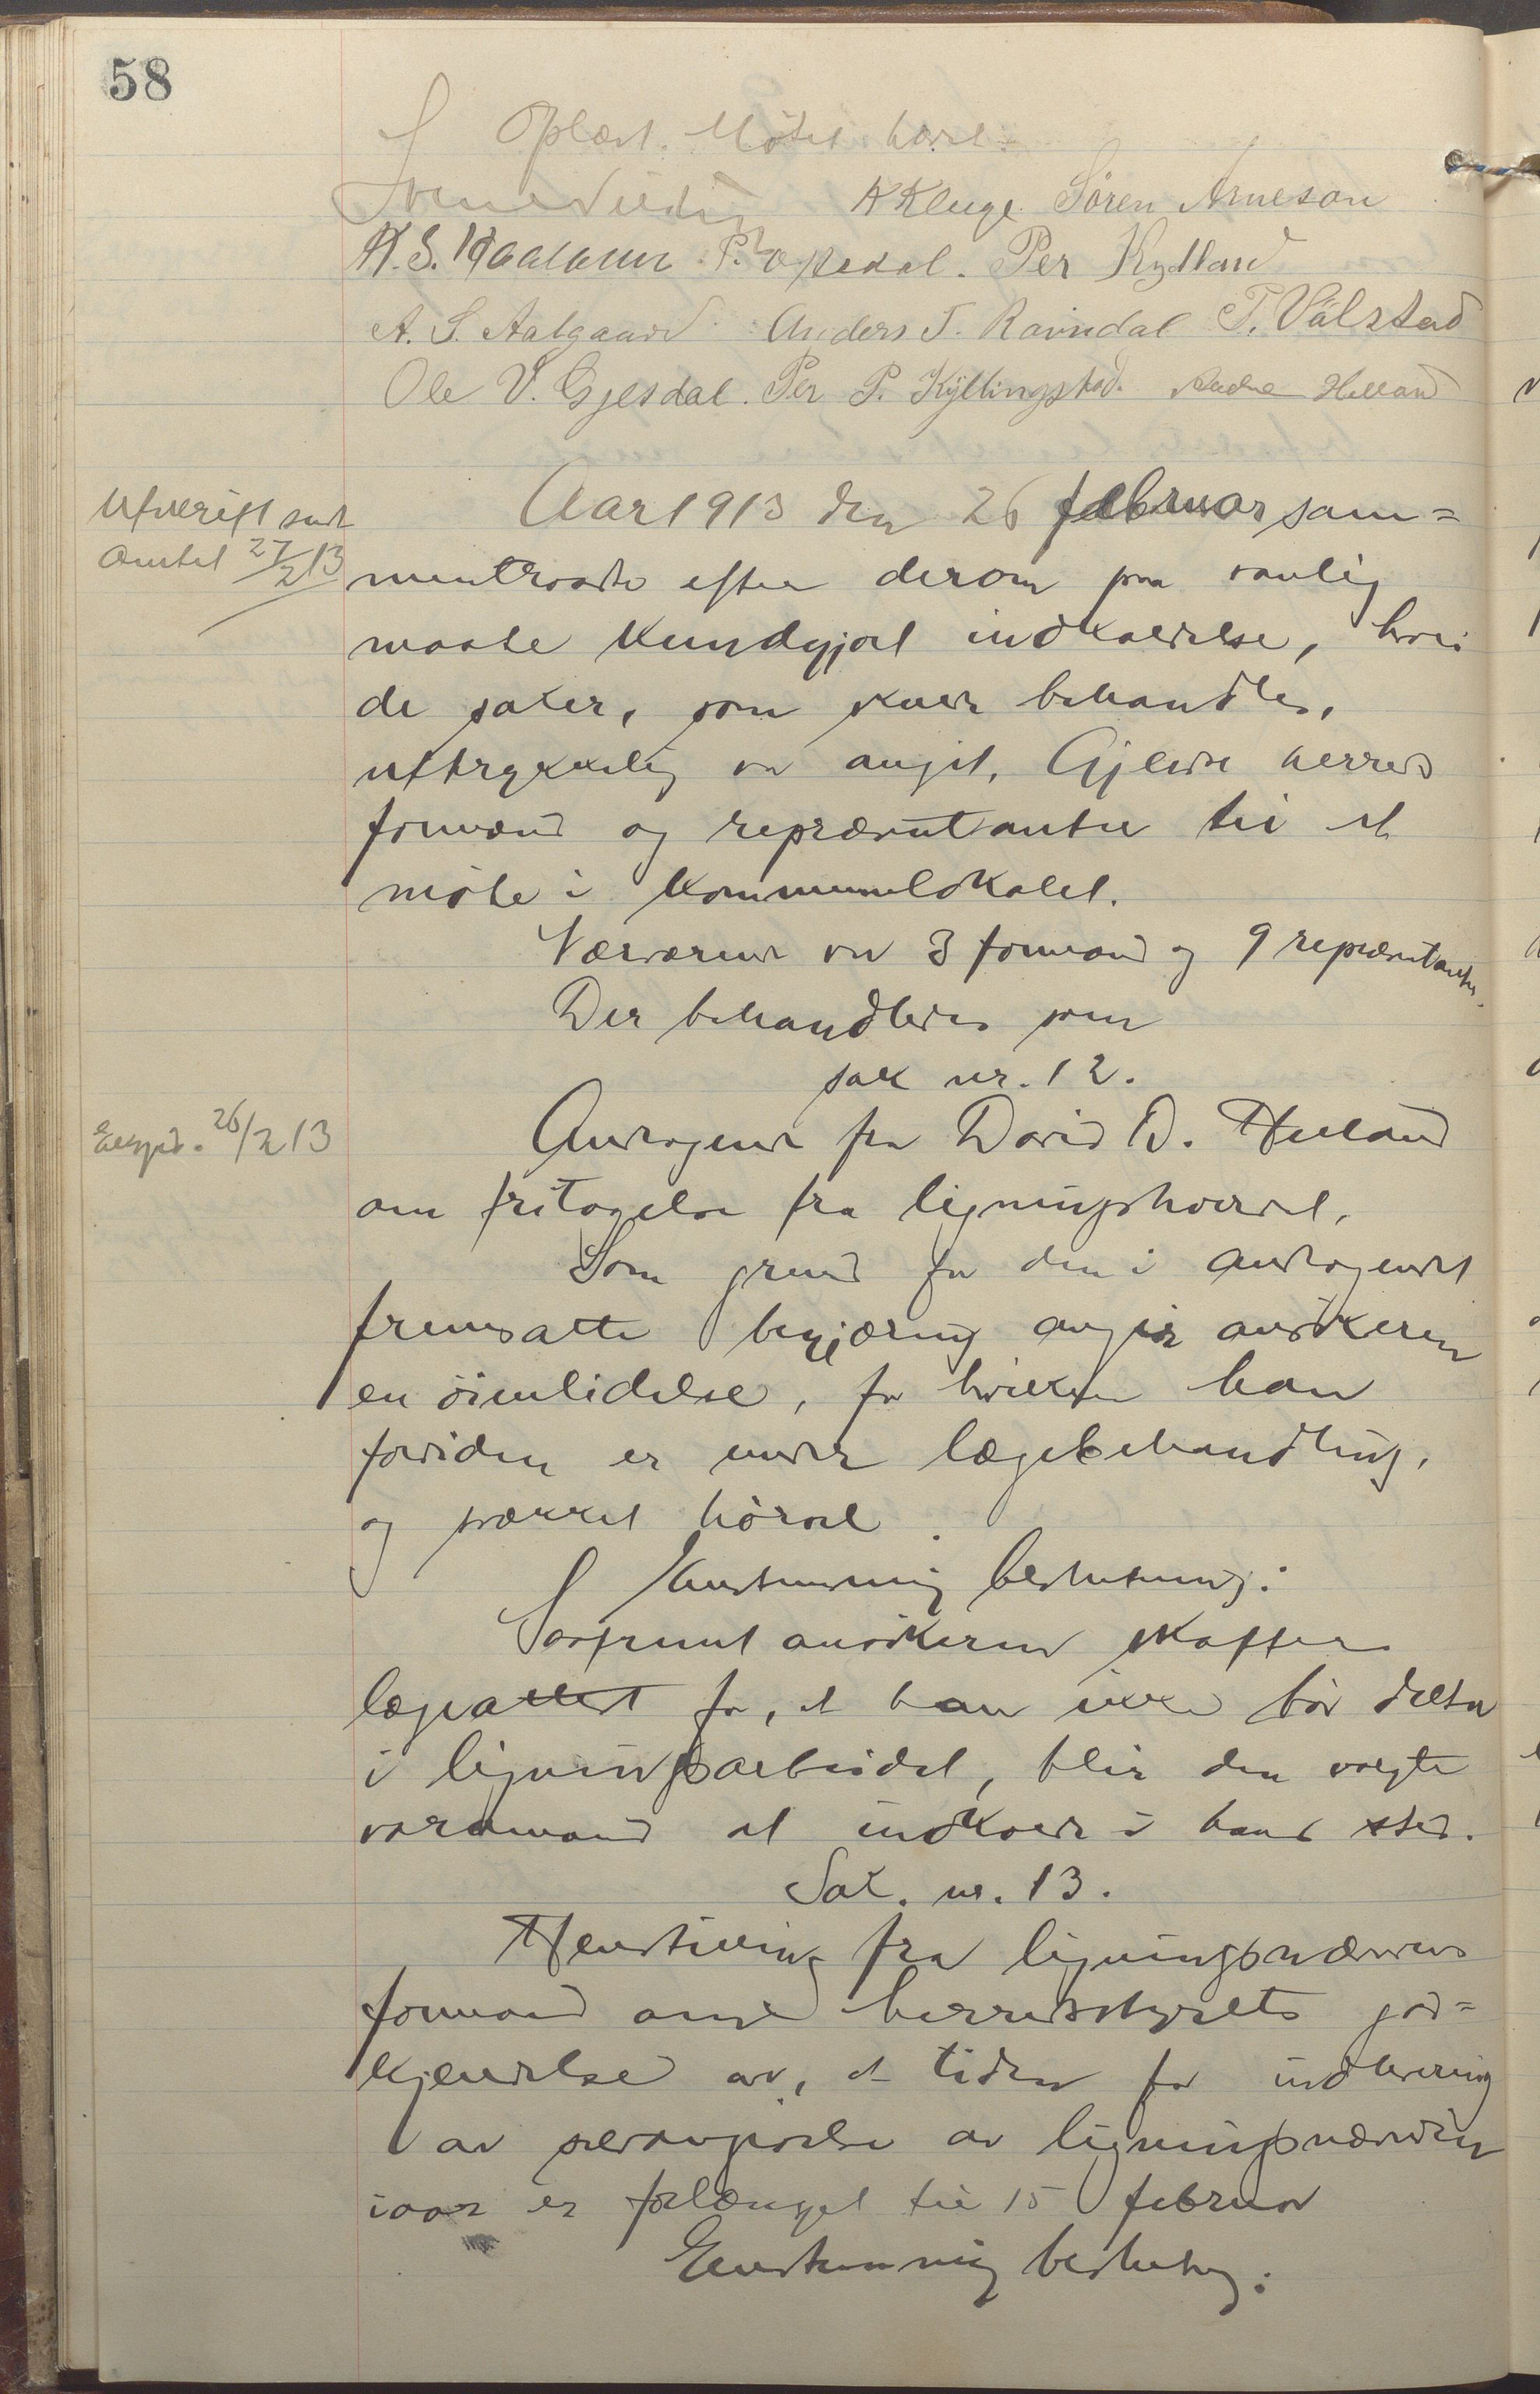 58
Oplæst. Møtet hævet.
K Kluge Sören Arneson
P. Opsadal. Per Kydland
A. S. Aalgaard Anders T. Ravndal T. Válstad
Ole V. Gjesdal. Per P. Kyllingstad. Helland
Utskrift sendt
Amtet 27/2 13
Aar 1913 den 26 februar sam=
mentraadte efter derom paa vanlig
maate kundgjort indkaldelse, hvori
de saker, som skulde behandles,
uttrykkelig var angit, Gjesdal herreds
formænd og repræsentanter til et
møte i kommunelokalet.
Nærværende var 3 formænd og 9 repræsentanter.
Der behandledes som
sak nr. 12.
Exsped. 26/2 13
Andragende fra David D. Helland
om fritagelse fra ligningshvervet.
Som grund for den i andragendet
fremsatte begjæring angir ansökeren
en öienlidelse, for hvilken han
fortiden er under lægebehandling,
og svækket hörsel.
Enstemmig beslutning:
Saafremt ansökeren skaffer
lægeattest for, at han ikke bör delta
i ligningsarbeidet, blir den valgte
varamand at indkalde i hans sted.
Sak. nr. 13.
Henstilling fra ligningsnævndens
formand om herredsstyrets god=
kjendelse av, at tiden for indlevering
av selvangivelse av ligningsnævnden
iaar er forlænget til 15 februar
Enstemmig beslutning: